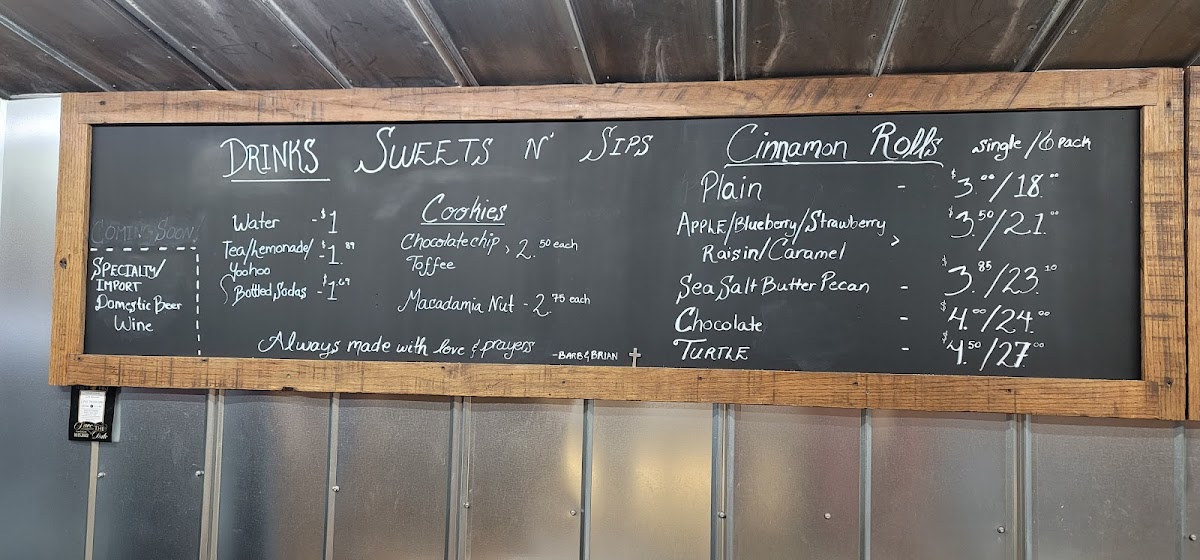 DRINKS SWEETS N' SIPS
COMING SOON!
SPECIALTY/
IMPORT
Domestic Beer
Wine
Water - $1
Tea/Lemonade/ - $1.89
Yoohoo
Bottled Sodas - $1.69
Cookies
Chocolate chip > 2.50 each
Toffee
Macadamia Nut - 2.75 each
Always made with love & prayers
- BARB & BRIAN
Cinnamon Rolls single/6 pack
Plain - $3.00/18.00
APPLE/Blueberry/Strawberry > $3.50/21.00
Raisin/Caramel
Sea Salt Butter Pecan - $3.85/23.10
Chocolate - $4.00/24.00
TURTLE - $4.50/27.00